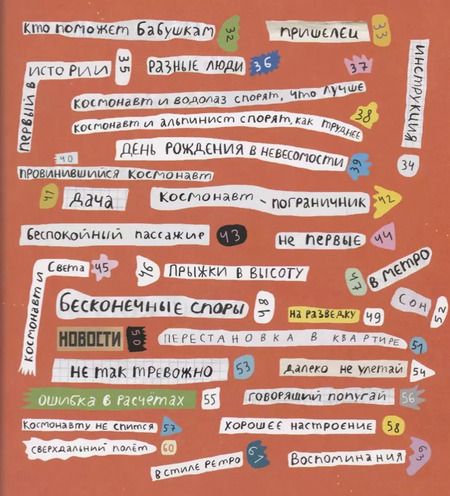 КТО ПОМОЖЕТ БАБУШКАМ 32
ПРИШЕЛЕЦ 33
ПЕРВЫЙ В ИСТОРИИ 35
РАЗНЫЕ ЛЮДИ 36
37
ИНСТРУКЦИЯ 34
КОСМОНАВТ И ВОДОЛАЗ СПОРЯТ, ЧТО ЛУЧШЕ
КОСМОНАВТ И АЛЬПИНИСТ СПОРЯТ, КАК ТРУДНЕЕ 38
ДЕНЬ РОЖДЕНИЯ В НЕВЕСОМОСТИ 39
40
ПРОВИНИВШИЙСЯ КОСМОНАВТ
41 ДАЧА
КОСМОНАВТ - ПОГРАНИЧНИК 42
БЕСПОКОЙНЫЙ ПАССАЖИР 43
НЕ ПЕРВЫЕ 44
КОСМОНАВТ И Света 45
46 ПРЫЖКИ В ВЫСОТУ
В МЕТРО 47
БЕСКОНЕЧНЫЕ СПОРЫ 48
НА РАЗВЕДКУ 49
СОН 52
НОВОСТИ 50
ПЕРЕСТАНОВКА В КВАРТИРЕ 51
НЕ ТАК ТРЕВОЖНО 53
ДАЛЕКО НЕ УЛЕТАЙ 54
ОШИБКА В РАСЧЁТАХ 55
ГОВОРЯЩИЙ ПОПУГАЙ 56
КОСМОНАВТУ НЕ СПИТСЯ 57
ХОРОШЕЕ НАСТРОЕНИЕ 58
СВЕРХДАЛЬНИЙ ПОЛЁТ 60
В СТИЛЕ РЕТРО 61
ВОСПОМИНАНИЯ 63